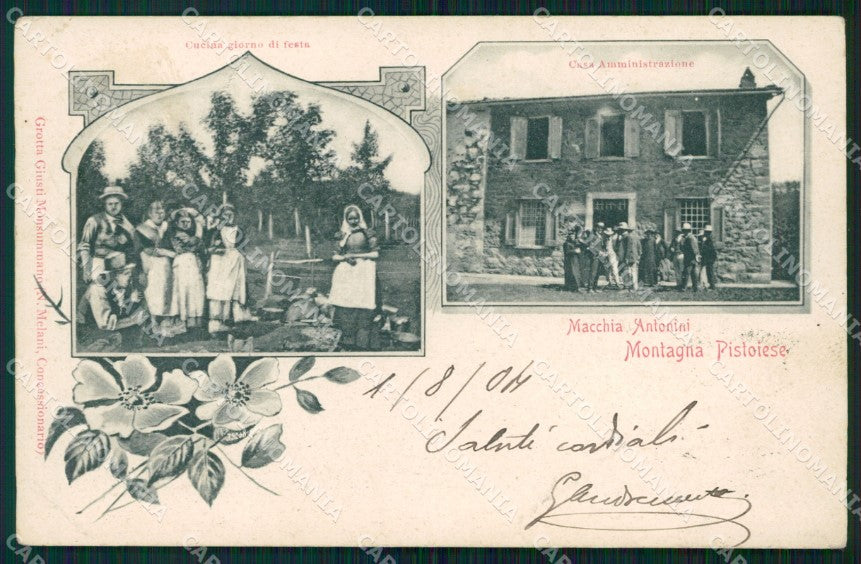 Cucina giorno di festa
Casa Amministrazione
Grotta Giusti Monsummano, N. Melani, Concessionario
Macchia Antonini
Montagna Pistoiese
1/8/04
Saluti cordiali
CARTOLINOMANIA